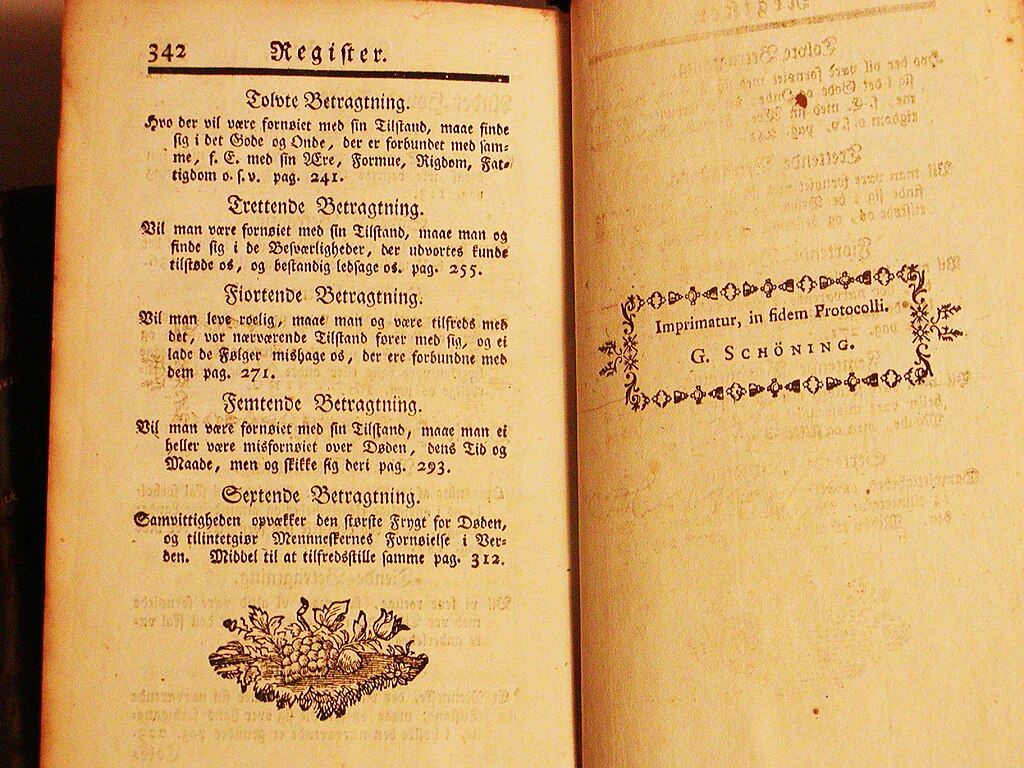 342 Regiſter.
Tolvte Betragtning.
Hvo der vil være fornøiet med ſin Tilſtand, maae finde
ſig i det Gode og Onde, der er forbundet med ſam-
me, ſ. E. med ſin Ære, Formue, Rigdom, Fat-
tigdom o. ſ. v. pag. 241.
Trettende Betragtning.
Vil man være fornøiet med ſin Tilſtand, maae man og
finde ſig i de Beſværligheder, der udvortes kunde
tilſtøde os, og beſtandig ledſage os. pag. 255.
Fiortende Betragtning.
Vil man leve roelig, maae man og være tilfreds med
det, vor nærværende Tilſtand fører med ſig, og ei
lade de Følger mishage os, der ere forbundne med
dem pag. 271.
Femtende Betragtning.
Vil man være fornøiet med ſin Tilſtand, maae man ei
heller være misfornøiet over Døden, dens Tid og
Maade, men og ſkikke ſig deri pag. 293.
Sextende Betragtning.
Samvittigheden opvækker den ſtørſte Frygt for Døden,
og tilintetgiør Mennneſkernes Fornøielſe i Ver-
den. Middel til at tilfredsſtille ſamme pag. 312.
Imprimatur, in fidem Protocolli.
G. SCHÖNING.